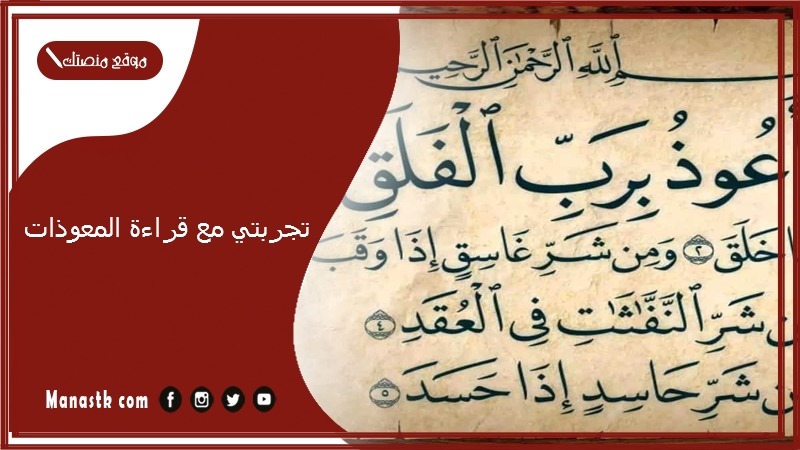 موقع منصتك
تجربتي مع قراءة المعوذات
Manastk com
ٱللَّهِ ٱلرَّحْمَٰنِ ٱلرَّحِي
عُوذُ بِرَبِّ ٱلْفَلَقِ
خَلَقَ ٢ وَمِن شَرِّ غَاسِقٍ إِذَا وَقَبَ
شَرِّ ٱلنَّفَّٰثَٰتِ فِى ٱلْعُقَدِ ٤
ن شَرِّ حَاسِدٍ إِذَا حَسَدَ ٥